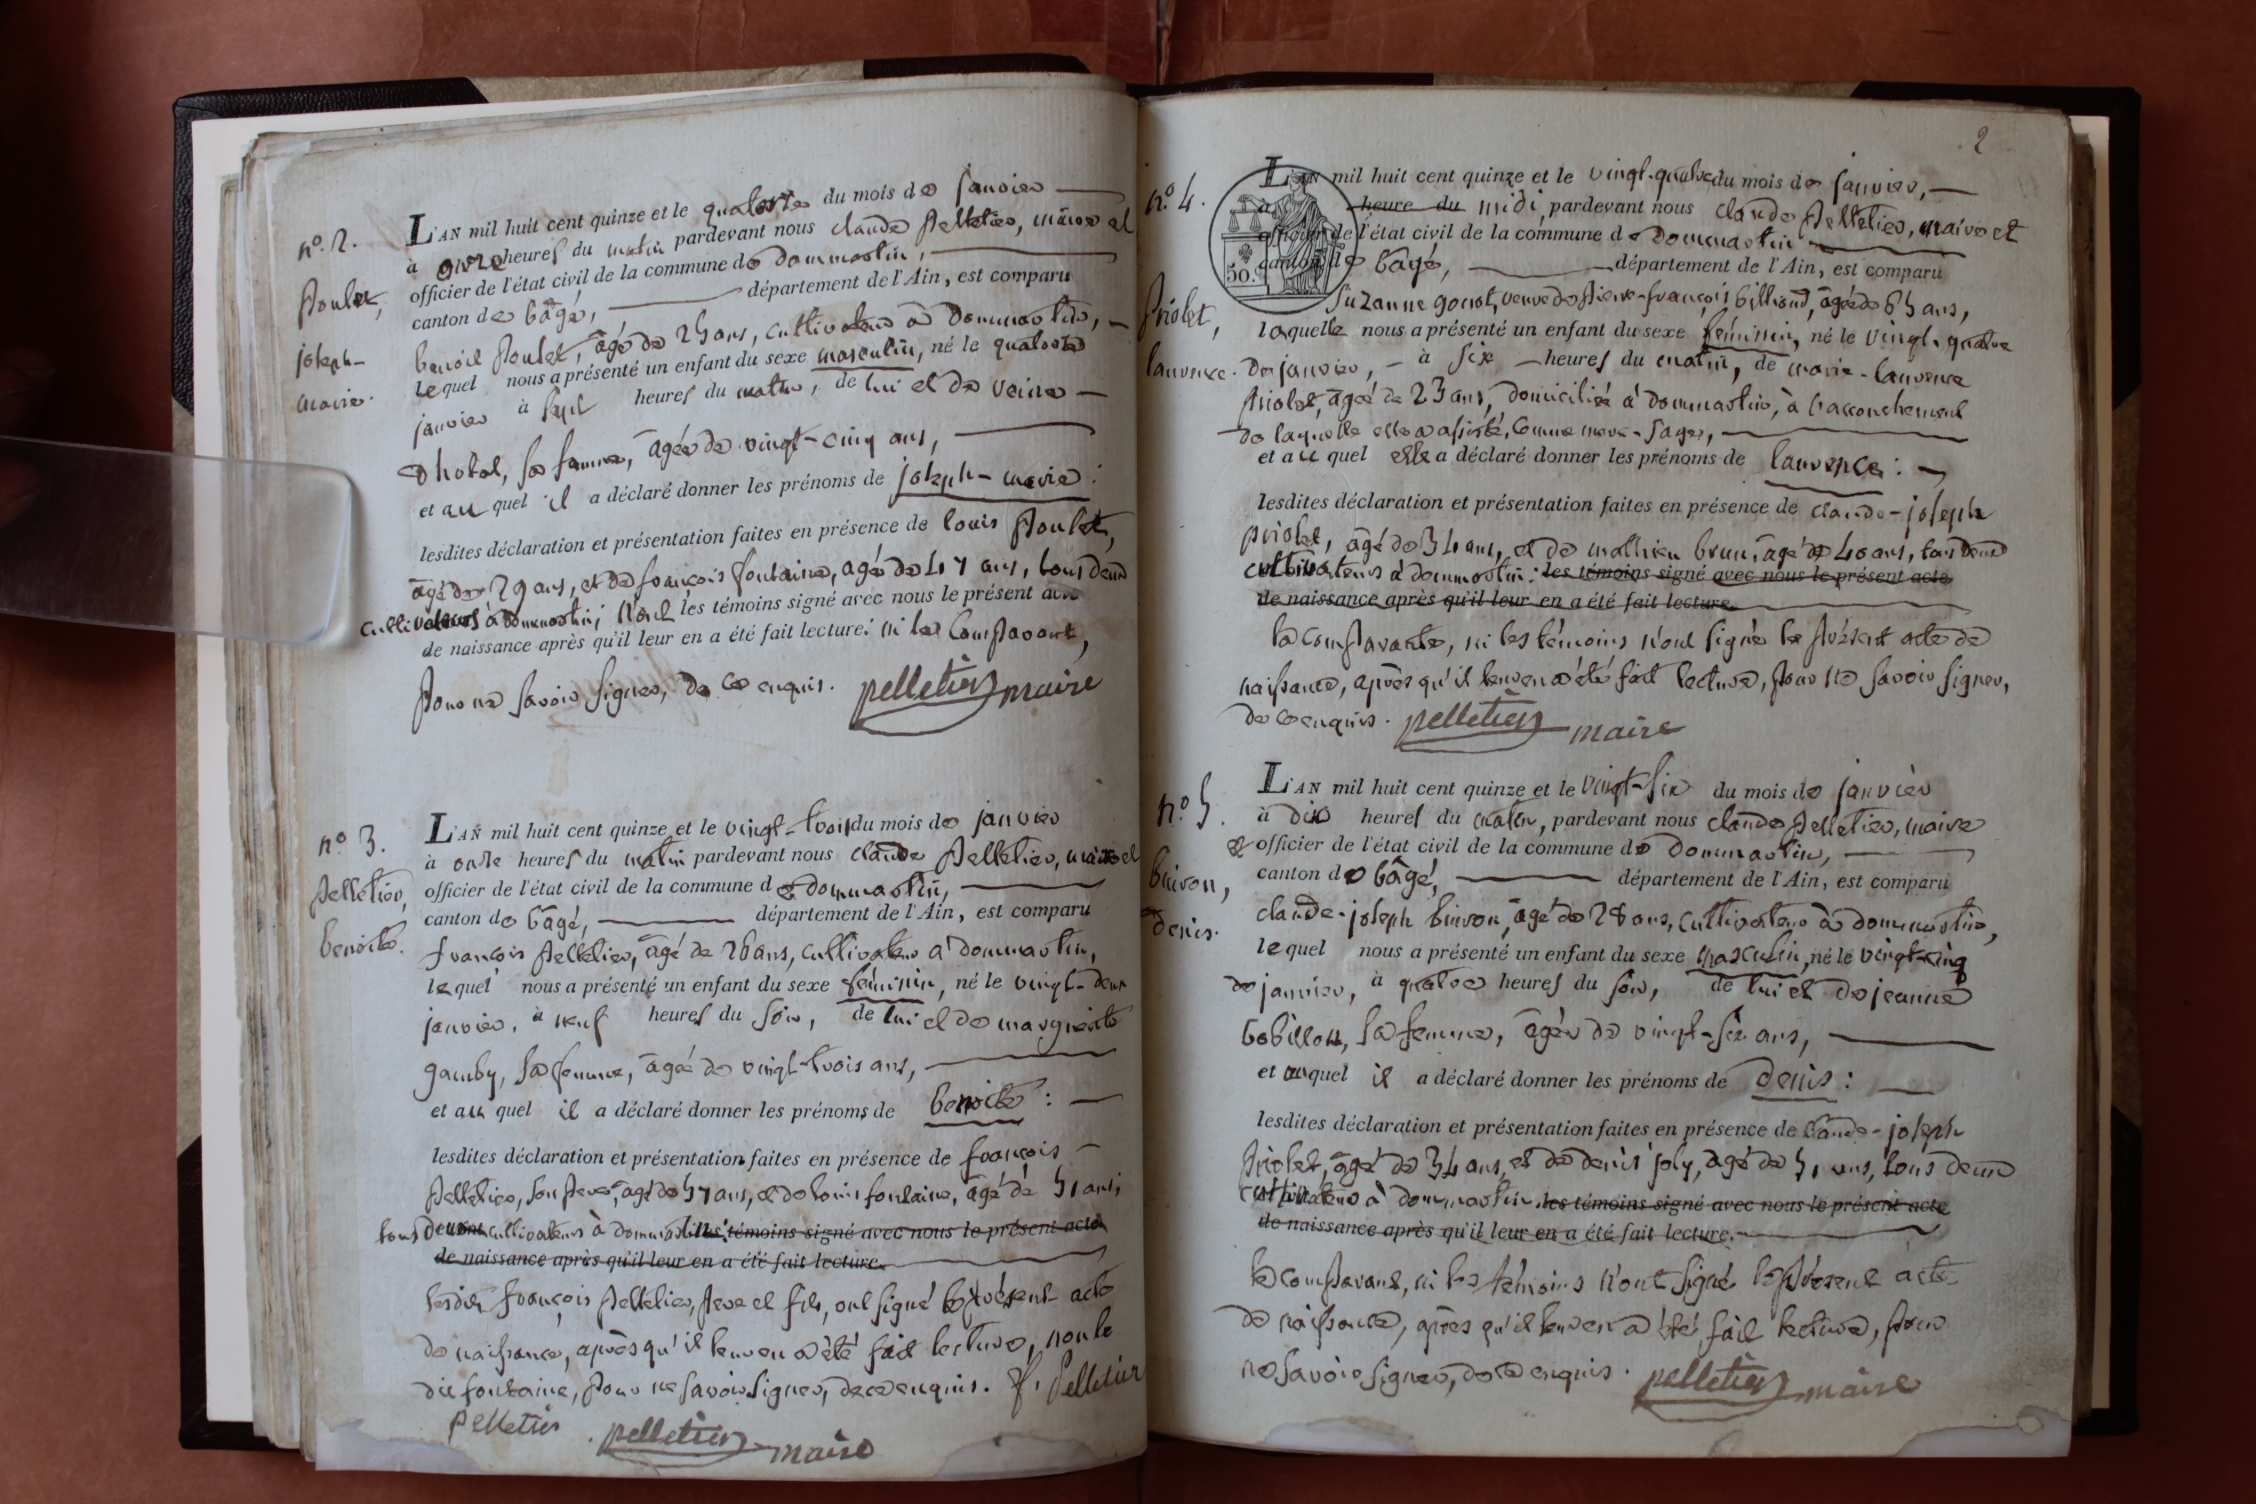 n.º 2.
Poulet,
joseph-
marie.
L'AN mil huit cent quinze et le quatorze du mois de janvier
à onze heures du matin pardevant nous claude Pelletier, maire et
officier de l'état civil de la commune de dommartin,
canton de bâgé, département de l'Ain, est comparu
benoit Poulet, âgé de 25 ans, cultivateur à dommartin,
lequel nous a présenté un enfant du sexe masculin, né le quatorze
janvier à sept heures du matin, de lui et de
sa femme, âgée de vingt-cinq ans,
et au quel il a déclaré donner les prénoms de joseph-marie :
lesdites déclaration et présentation faites en présence de louis Poulet,
âgé de 29 ans, et de françois fontaine, agé de 47 ans, tous deux
cultivateurs à dommartin; n'ont les témoins signé avec nous le présent acte
de naissance après qu'il leur en a été fait lecture: ni le comparant,
pour ne savoir signer, de ce enquis. pelletier maire
n.º 3.
Pelletier,
benoite.
L'AN mil huit cent quinze et le vingt-trois du mois de janvier
à onze heures du matin pardevant nous claude Pelletier, maire et
officier de l'état civil de la commune de dommartin,
canton de bâgé, département de l'Ain, est comparu
françois Pelletier, âgé de 26 ans, cultivateur à dommartin,
lequel nous a présenté un enfant du sexe féminin, né le vingt-deux
janvier, à neuf heures du soir, de lui et de marguerite
gamby, sa femme, âgée de vingt-trois ans,
et au quel il a déclaré donner les prénoms de benoite :
lesdites déclaration et présentation faites en présence de françois
Pelletier, son père, âgé de 57 ans, et de louis fontaine, âgé de 51 ans,
tous deux cultivateurs à dommartin: les témoins signé avec nous le présent acte
de naissance après qu'il leur en a été fait lecture.
lesdits françois Pelletier, père et fils, ont signé le présent acte
de naissance, après qu'il leur en a été fait lecture, non le
dit fontaine, pour ne savoir signer, de ce enquis. f. Pelletier
pelletier pelletier maire
2
n.º 4.
Priolet,
laurence.
L'AN mil huit cent quinze et le vingt-quatre du mois de janvier,
à heure du midi, pardevant nous claude Pelletier, maire et
officier de l'état civil de la commune de dommartin
canton de bâgé, département de l'Ain, est comparu
50.
Suzanne gonot, veuve de Pierre-françois billioud, âgée de 65 ans,
laquelle nous a présenté un enfant du sexe féminin, né le vingt-quatre
de janvier, à six heures du matin, de marie-laurence
Priolet, âgée de 23 ans, domiciliée à dommartin, à l'accouchement
de laquelle elle a assisté, comme mere-sages,
et au quel elle a déclaré donner les prénoms de laurence :
lesdites déclaration et présentation faites en présence de claude-joseph
priolet, âgé de 34 ans, et de mathieu brun, âgé de 40 ans, tous deux
cultivateurs à dommartin: les témoins signé avec nous le présent acte
de naissance après qu'il leur en a été fait lecture.
la comparante, ni les témoins n'ont signé le présent acte de
naissance, après qu'il leur en a été fait lecture, pour ne savoir signer,
de ce enquis. pelletier maire
n.º 5.
buiron,
denis.
L'AN mil huit cent quinze et le vingt-six du mois de janvier
à dix heures du matin, pardevant nous claude Pelletier, maire
et officier de l'état civil de la commune de dommartin,
canton de bâgé, département de l'Ain, est comparu
claude-joseph buiron, âgé de 28 ans, cultivateur à dommartin,
lequel nous a présenté un enfant du sexe masculin, né le vingt-cinq
de janvier, à quatre heures du soir, de lui et de jeanne
bobillon, sa femme, âgée de vingt-six ans,
et au quel il a déclaré donner les prénoms de denis :
lesdites déclaration et présentation faites en présence de claude-joseph
Priolet, âgé de 34 ans, et de denis joly, agé de 51 ans, tous deux
cultivateurs à dommartin. les témoins signé avec nous le présent acte
de naissance après qu'il leur en a été fait lecture.
le comparant, ni les témoins n'ont signé le présent acte
de naissance, après qu'il leur en a été fait lecture, pour
ne savoir signer, de ce enquis. pelletier maire